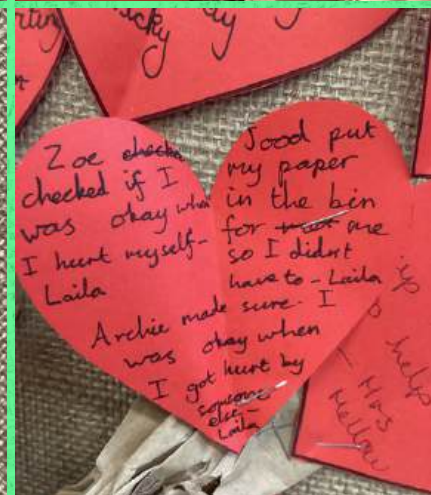 Zoe
checked if I
was okay when
I hurt myself-
Laila
Jood put
my paper
in the bin
for me
so I didnt
have to - Laila
Archie made sure I
was okay when
I got hurt by
someone
else-
Laila
help
- Mrs
Mellow